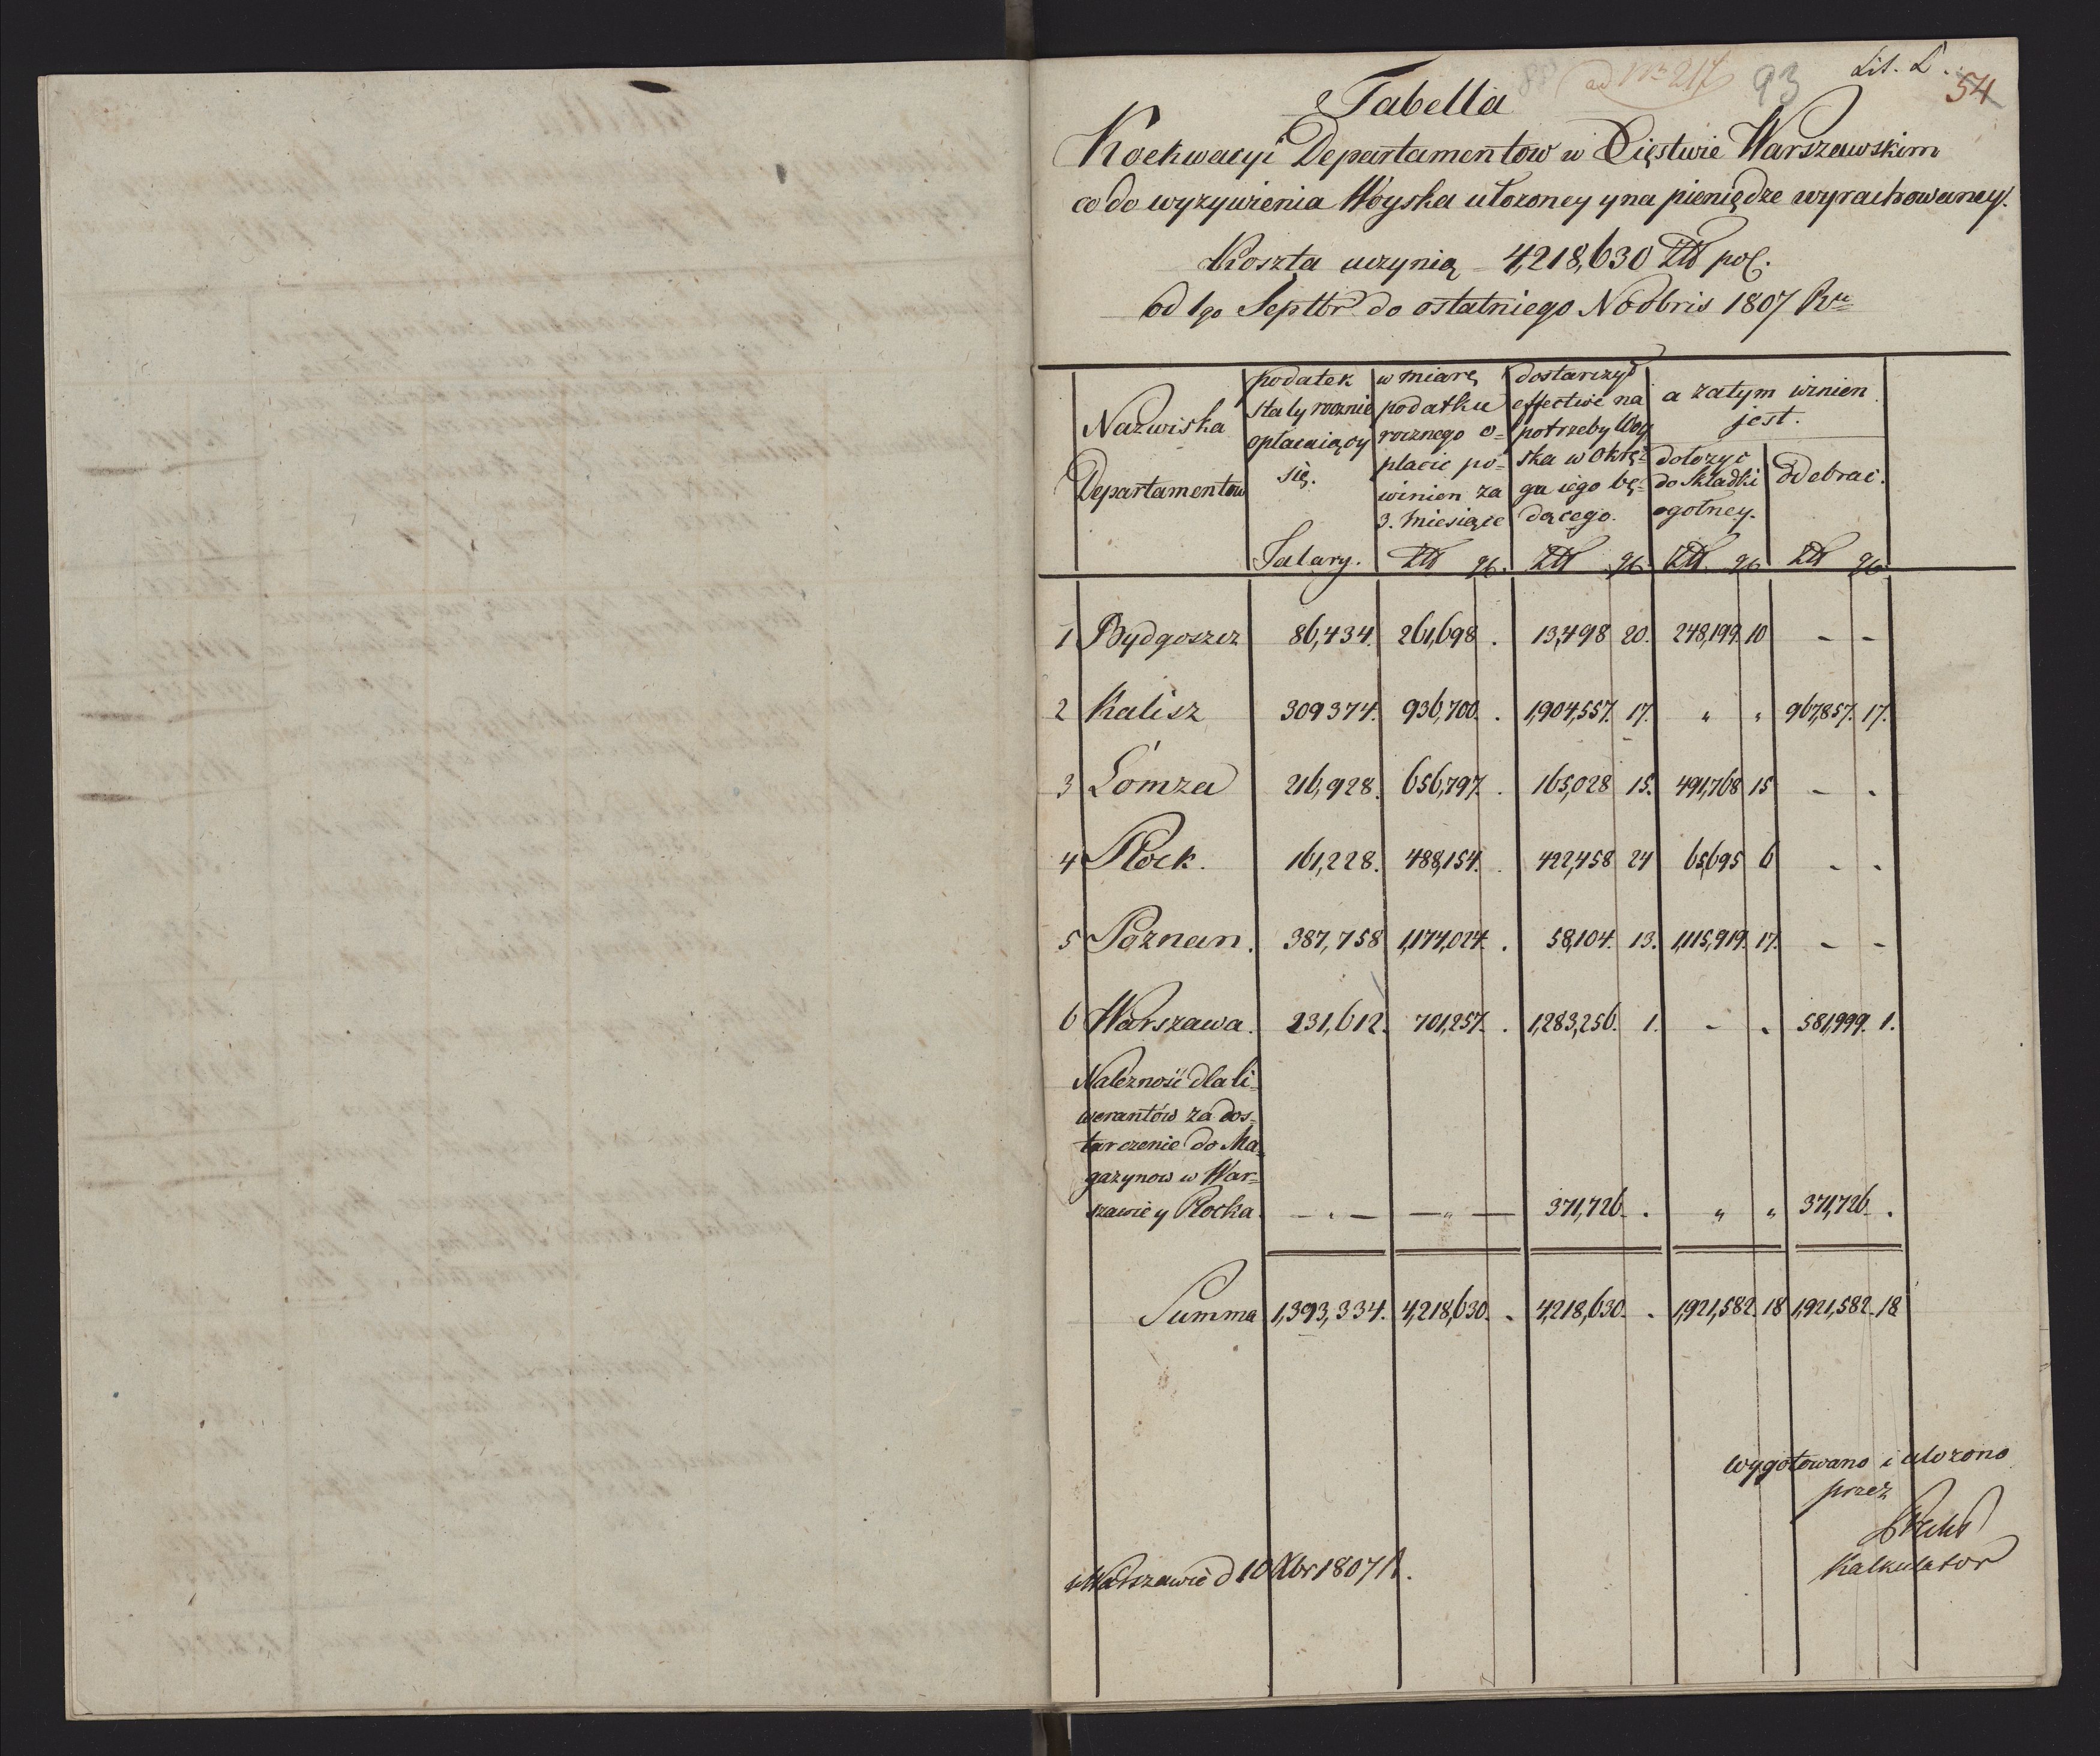 Lit. L.
93
54
Tabella
Koekwacyi Departamentow w Xięstwie Warszawskim
co do wyzywienia Woyska ułozoney y na pieniędze wyrachowaney.
Koszta uczynią 4,218,630 Zł pol.
od 1go Septbr do ostatniego Nowbris 1807 Ru
Nazwiska Departamentow | podatek stały rocznie opłacaiący się. Talary. | w miarę podatku rocznego o= płacic po= winien za 3. Miesiące Zł gr. | dostarczył effective na potrzeby Woy ska w Okrę= gu iego bę= dącego. Zł gr. | a zatym winien jest. dołozyc do składki ogolney. Zł gr | Odebrac. Zł gr
1 Bydgoszcz 86,434. 261,698 . 13,498 20. 248,199. 10 - -
2 Kalisz 309374. 936,700. . 1,904,557. 17. " " 967,857. 17.
3 Łomza 216,928. 656,797. . 165,028 15. 491,768 15 - -
4 Płock. 161,228. 488,154. . 422,458 24 65,695 6 - -
5 Poznan. 387,758 1,174,024. . 58,104. 13. 1,115,919. 17. - -
6 Warszawa. 231,612. 701,257. . 1,283,256. 1. - - 581,999. 1.
Nalezność dla li=
werantów za dos=
tarczenie do Ma=
gazynow w War=
szawie y Płocka. — " — — " — 371,726. . " " 371,726. .
Summa 1,393,334. 4,218,630. . 4,218,630. . 1,921,582. 18 1,921,582. 18
wygotowano i ułozono
przez
Kalkulator
w Warszawie d 10 Xbr 1807 R.